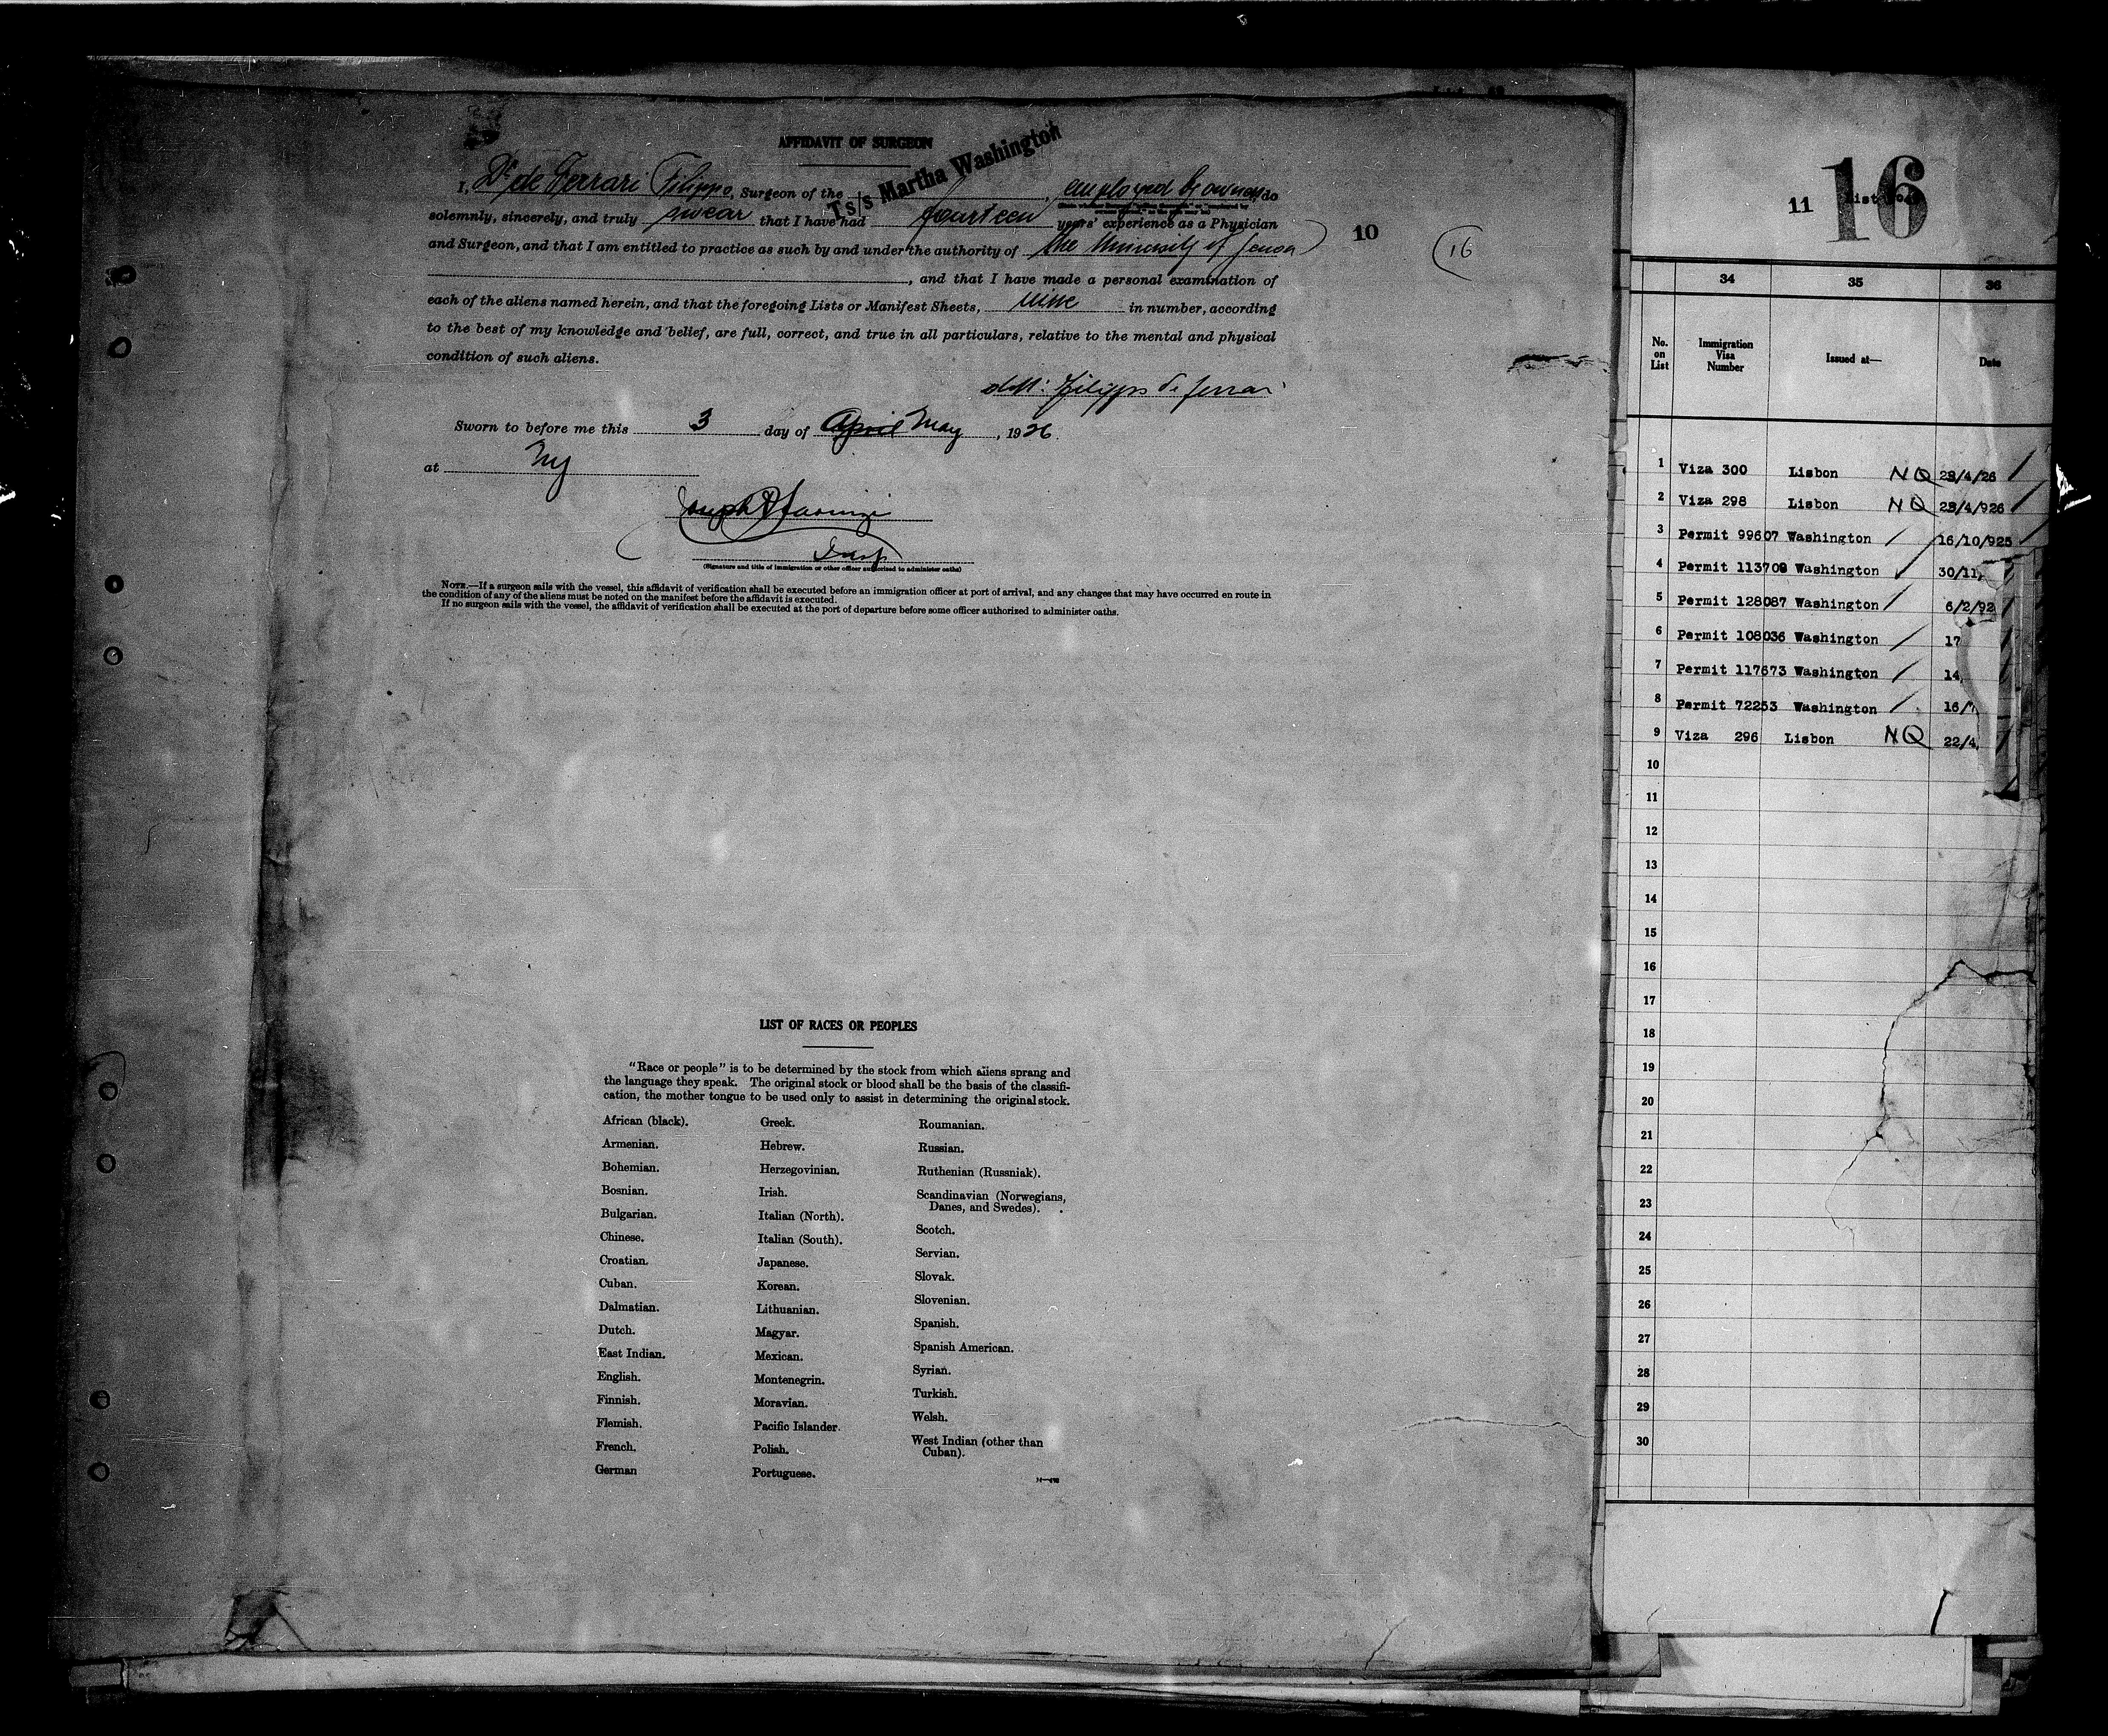 AFFIDAVIT OF SURGEON
I, Dr de Ferrari Filippo, Surgeon of the Ts/s Martha Washington, employed by owners, do
solemnly, sincerely, and truly swear that I have had fourteen years' experience as a Physician
and Surgeon, and that I am entitled to practice as such by and under the authority of the University of Genoa
, and that I have made a personal examination of
each of the aliens named herein, and that the foregoing Lists or Manifest Sheets, nine in number, according
to the best of my knowledge and belief, are full, correct, and true in all particulars, relative to the mental and physical
condition of such aliens.
dott: Filippo de Ferrari
Sworn to before me this 3 day of April May, 1926.
at Ny
Insp
(Signature and title of immigration or other officer authorized to administer oaths)
NOTE.—If a surgeon sails with the vessel, this affidavit of verification shall be executed before an immigration officer at port of arrival, and any changes that may have occurred en route in
the condition of any of the aliens must be noted on the manifest before the affidavit is executed.
If no surgeon sails with the vessel, the affidavit of verification shall be executed at the port of departure before some officer authorized to administer oaths.
10
16
LIST OF RACES OR PEOPLES
"Race or people" is to be determined by the stock from which aliens sprang and
the language they speak. The original stock or blood shall be the basis of the classifi-
cation, the mother tongue to be used only to assist in determining the original stock.
African (black).
Armenian.
Bohemian.
Bosnian.
Bulgarian.
Chinese.
Croatian.
Cuban.
Dalmatian.
Dutch.
East Indian.
English.
Finnish.
Flemish.
French.
German
Greek.
Hebrew.
Herzegovinian.
Irish.
Italian (North).
Italian (South).
Japanese.
Korean.
Lithuanian.
Magyar.
Mexican.
Montenegrin.
Moravian.
Pacific Islander.
Polish.
Portuguese.
Roumanian.
Russian.
Ruthenian (Russniak).
Scandinavian (Norwegians,
Danes, and Swedes).
Scotch.
Servian.
Slovak.
Slovenian.
Spanish.
Spanish American.
Syrian.
Turkish.
Welsh.
West Indian (other than
Cuban).
11 List 16
34 35 36
No. on List Immigration Visa Number Issued at— Date
1 Viza 300 Lisbon NQ 23/4/26
2 Viza 298 Lisbon NQ 23/4/926
3 Permit 99607 Washington 16/10/925
4 Permit 113709 Washington 30/11/
5 Permit 128087 Washington 6/2/92
6 Permit 108036 Washington 17
7 Permit 117673 Washington 14
8 Permit 72253 Washington 16/
9 Viza 296 Lisbon NQ 22/4
10
11
12
13
14
15
16
17
18
19
20
21
22
23
24
25
26
27
28
29
30